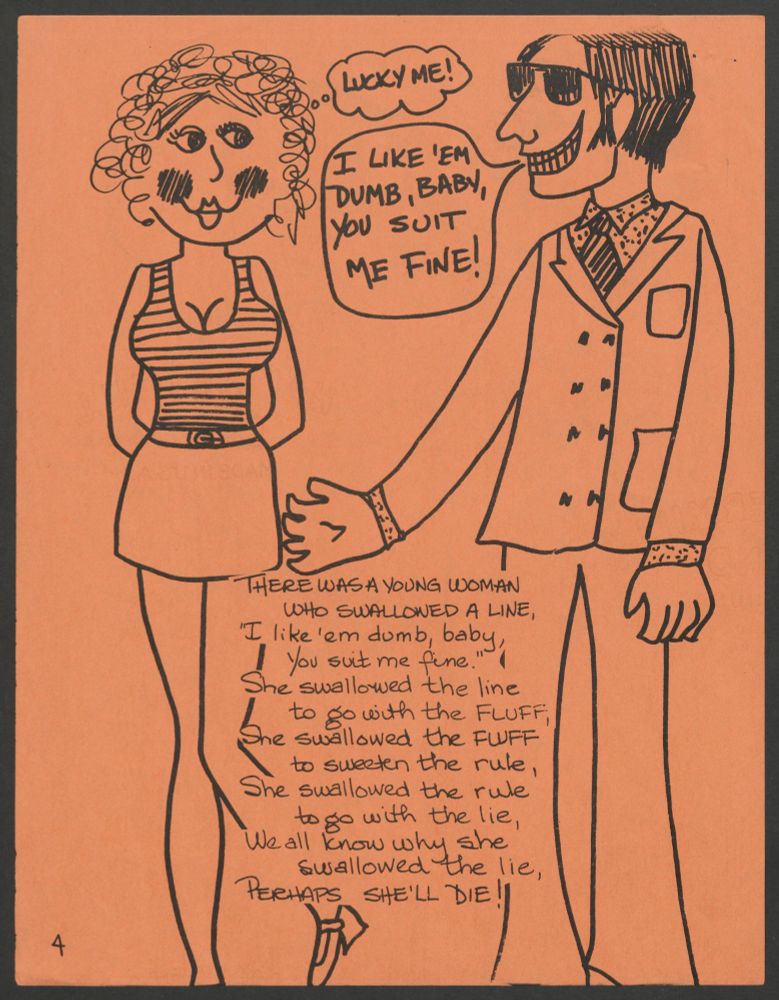 LUCKY ME!
I LIKE 'EM
DUMB, BABY,
YOU SUIT
ME FINE!
THERE WAS A YOUNG WOMAN
WHO SWALLOWED A LINE,
"I like 'em dumb, baby,
You suit me fine."
She swallowed the line
to go with the FLUFF,
She swallowed the FLUFF
to sweeten the rule,
She swallowed the rule
to go with the lie,
We all know why she
swallowed the lie,
PERHAPS SHE'LL DIE!
4